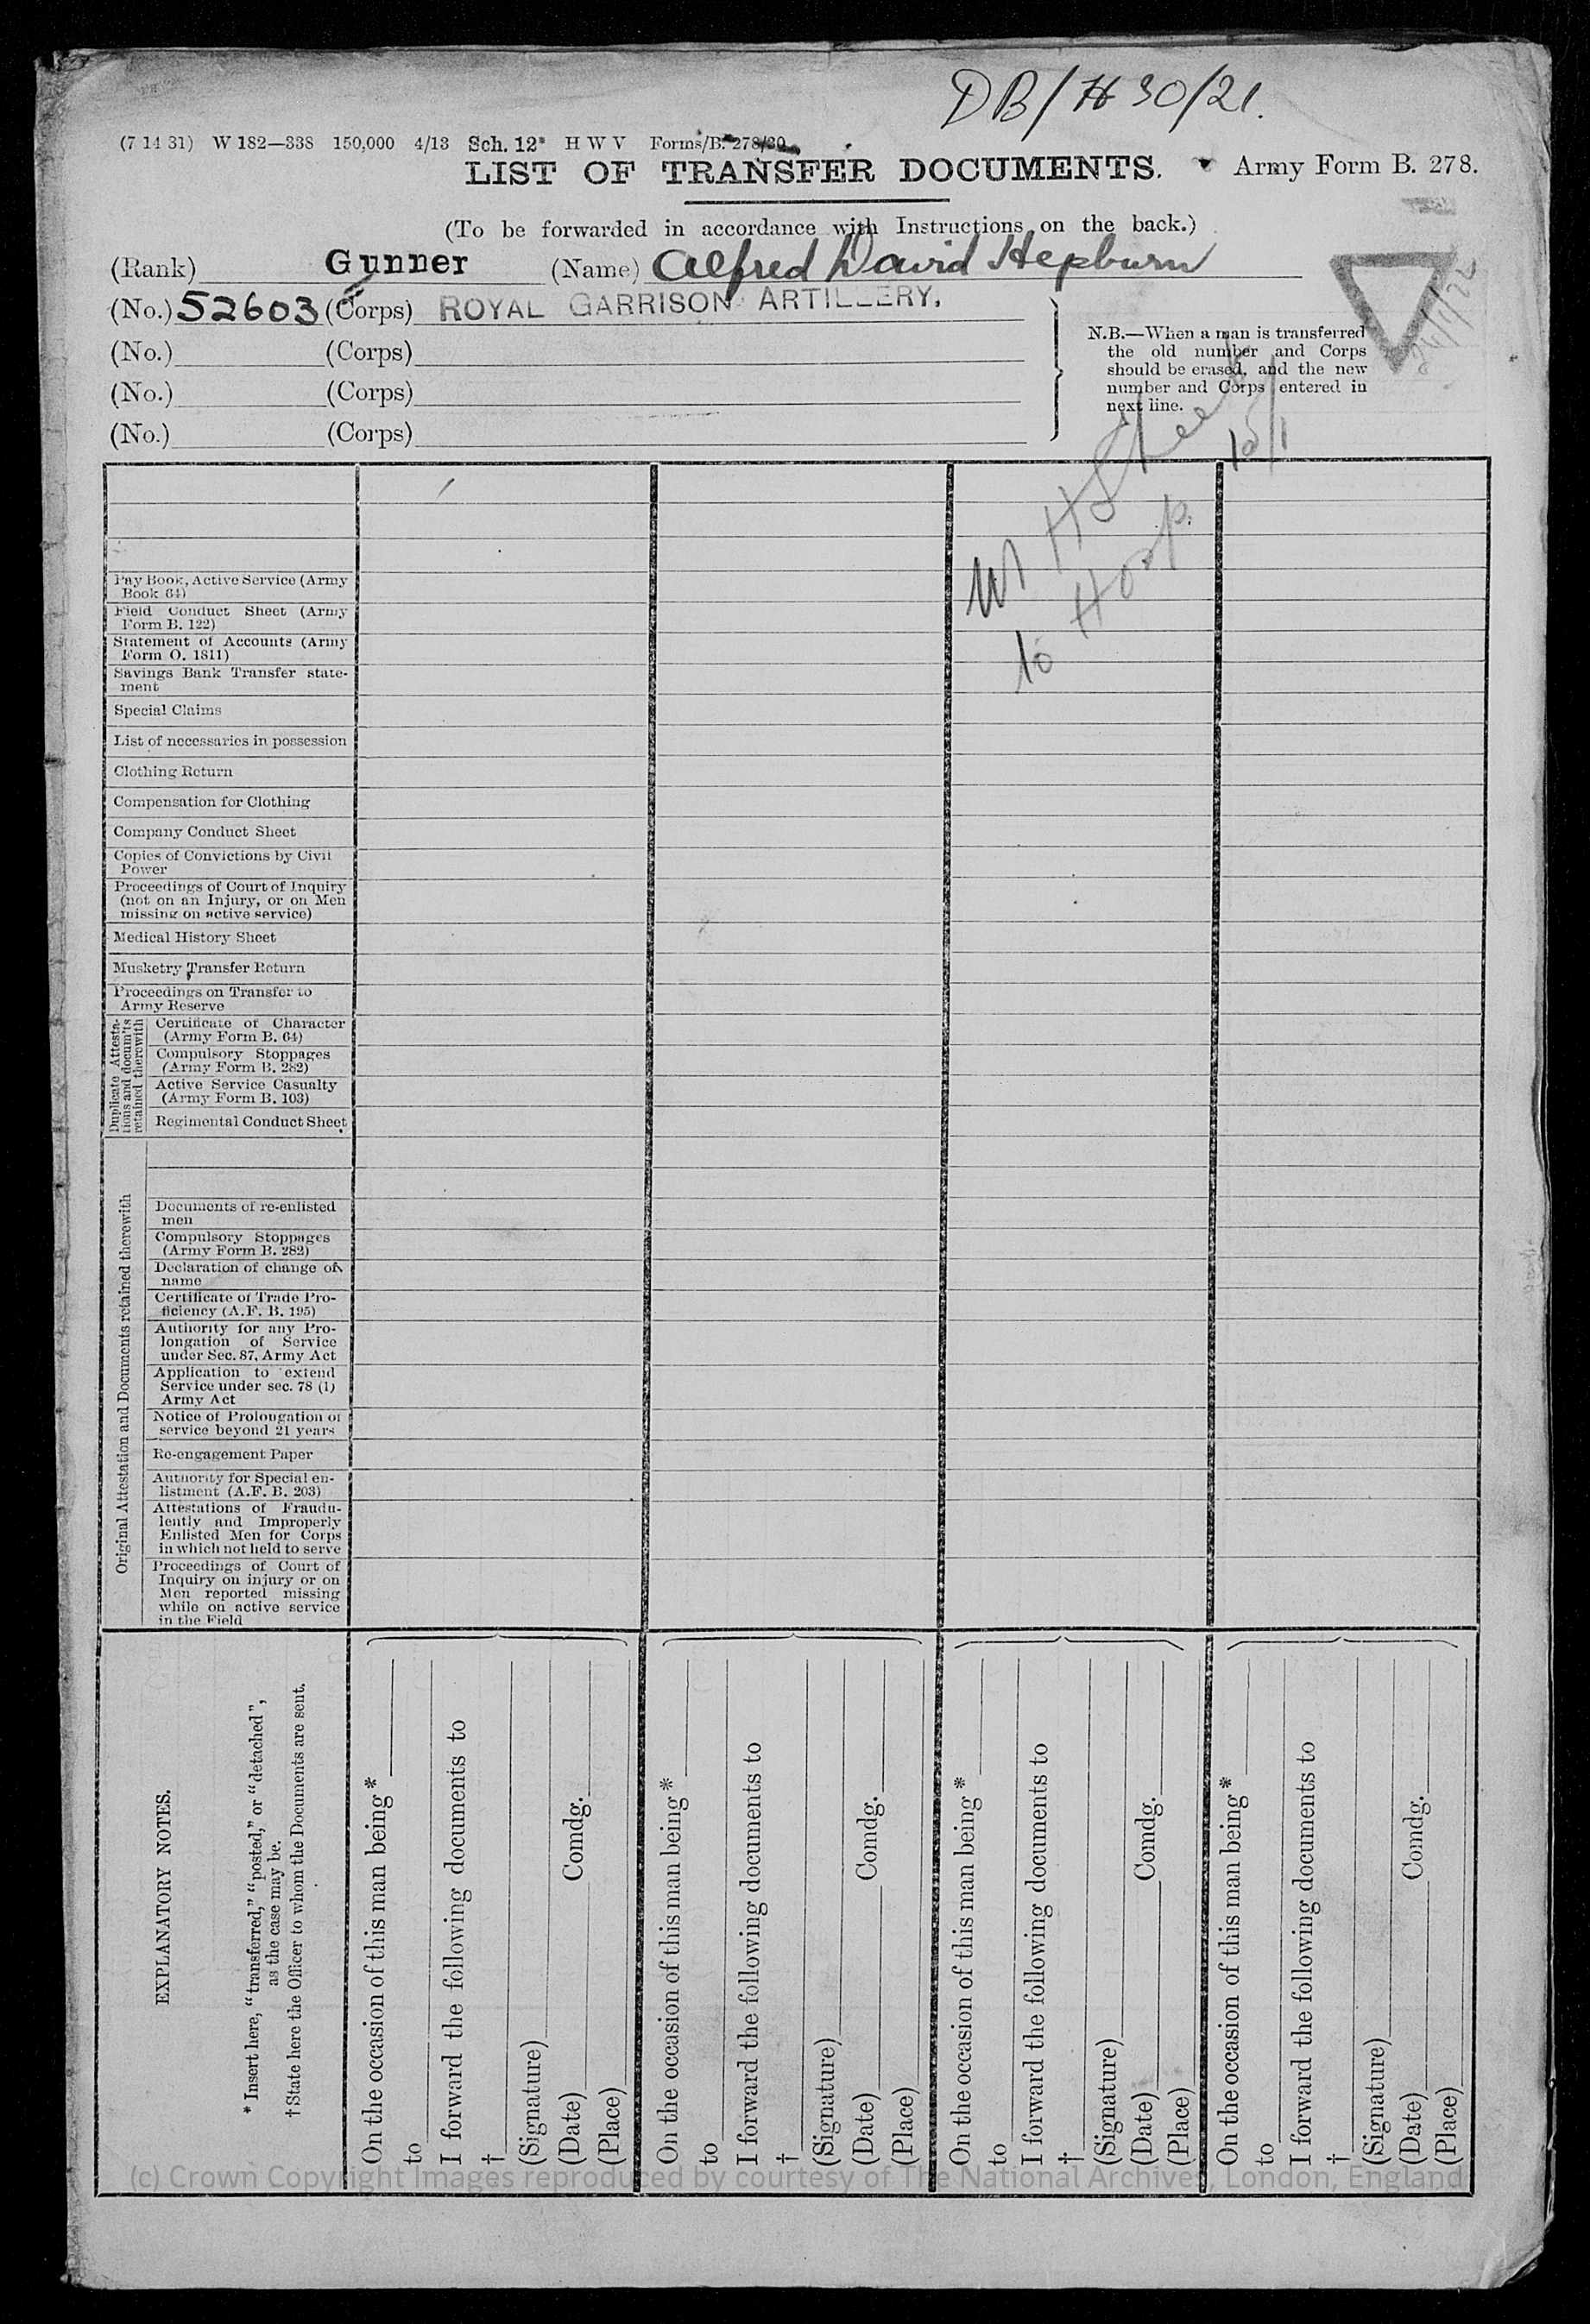 DB/H 30/21.
(7 14 31) W 182—338 150,000 4/13 Sch. 12* H W V Forms/B. 278/30
LIST OF TRANSFER DOCUMENTS. Army Form B. 278.
(To be forwarded in accordance with Instructions on the back.)
(Rank) Gunner (Name) Alfred David Hepburn
(No.) 52603 (Corps) ROYAL GARRISON ARTILLERY.
(No.) (Corps)
(No.) (Corps)
(No.) (Corps)
N.B.—When a man is transferred
the old number and Corps
should be erased, and the new
number and Corps entered in
next line.
M H Sheet
to Hosp.
Pay Book, Active Service (Army
Book 64)
Field Conduct Sheet (Army
Form B. 122)
Statement of Accounts (Army
Form O. 1811)
Savings Bank Transfer state-
ment
Special Claims
List of necessaries in possession
Clothing Return
Compensation for Clothing
Company Conduct Sheet
Copies of Convictions by Civil
Power
Proceedings of Court of Inquiry
(not on an Injury, or on Men
missing on active service)
Medical History Sheet
Musketry Transfer Return
Proceedings on Transfer to
Army Reserve
Duplicate Attesta-
tions and docum'ts
retained therewith
Certificate of Character
(Army Form B. 64)
Compulsory Stoppages
(Army Form B. 282)
Active Service Casualty
(Army Form B. 103)
Regimental Conduct Sheet
Original Attestation and Documents retained therewith
Documents of re-enlisted
men
Compulsory Stoppages
(Army Form B. 282)
Declaration of change of
name
Certificate of Trade Pro-
ficiency (A.F. B. 195)
Authority for any Pro-
longation of Service
under Sec. 87, Army Act
Application to extend
Service under sec. 78 (1)
Army Act
Notice of Prolongation of
service beyond 21 years
Re-engagement Paper
Authority for Special en-
listment (A.F. B. 203)
Attestations of Fraudu-
lently and Improperly
Enlisted Men for Corps
in which not held to serve
Proceedings of Court of
Inquiry on injury or on
Men reported missing
while on active service
in the Field
EXPLANATORY NOTES.
* Insert here, "transferred," "posted," or "detached",
as the case may be.
† State here the Officer to whom the Documents are sent.
On the occasion of this man being *
to
I forward the following documents to
†
(Signature)
(Date) Comdg.
(Place)
On the occasion of this man being *
to
I forward the following documents to
†
(Signature)
(Date) Comdg.
(Place)
On the occasion of this man being *
to
I forward the following documents to
†
(Signature)
(Date) Comdg.
(Place)
On the occasion of this man being *
to
I forward the following documents to
†
(Signature)
(Date) Comdg.
(Place)
(c) Crown Copyright Images reproduced by courtesy of The National Archives, London, England